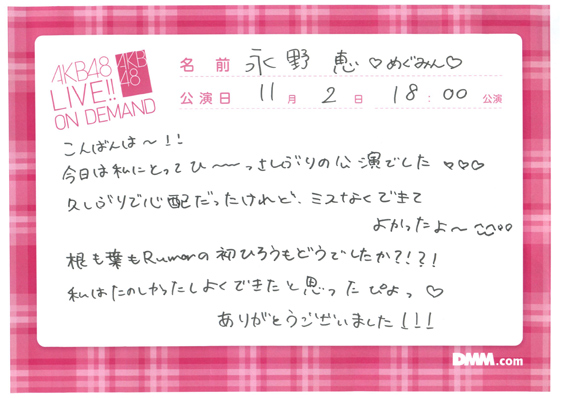 AKB48
LIVE!!
ON DEMAND
AKB
48
名前 永野 恵 ♡めぐみん♡
公演日 11月2日 18:00公演
こんばんは〜!!
今日は私にとってひ〜〜っさしぶりの公演でした ♡♡♡
久しぶりで心配だったけれど、ミスなくできて
よかったよ〜
根も葉もRumorの初ひろうもどうでしたか?!?!
私はたのしかったしよくできたと思ったぴよっ♡
ありがとうございました!!!
DMM.com